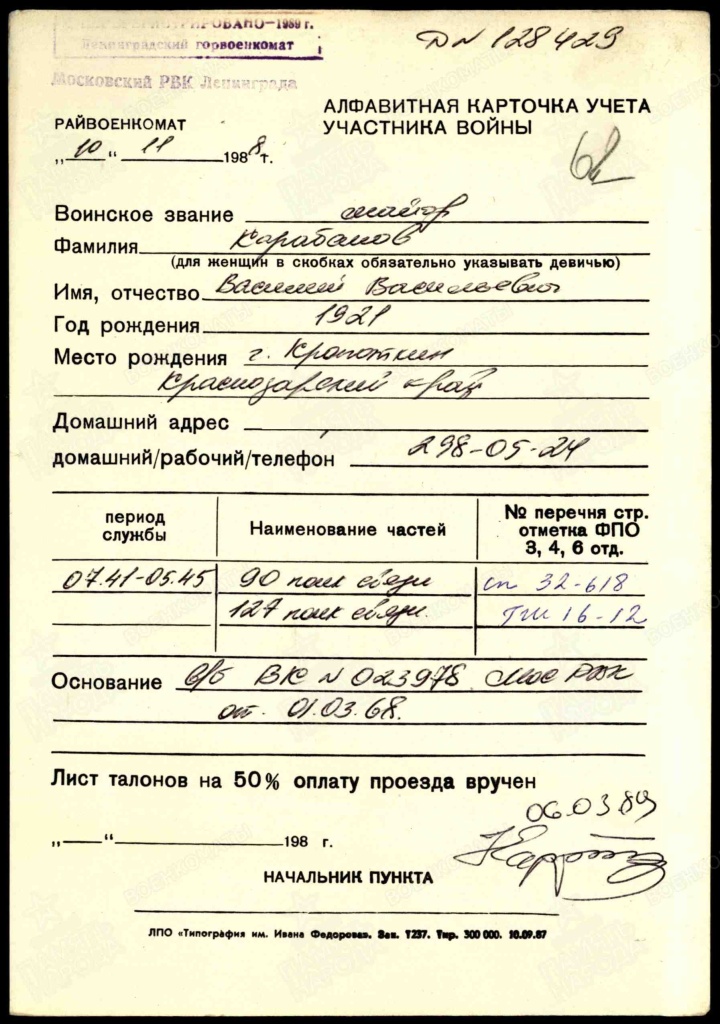 ПЕРЕРЕГИСТРИРОВАНО-1989 г.
Ленинградский горвоенкомат
Московский РВК Ленинграда
ДN 128429
РАЙВОЕНКОМАТ
„10“ 11 1988 г.
АЛФАВИТНАЯ КАРТОЧКА УЧЕТА
УЧАСТНИКА ВОЙНЫ
Воинское звание майор
Фамилия Карабанов
(для женщин в скобках обязательно указывать девичью)
Имя, отчество Василий Васильевич
Год рождения 1921
Место рождения г. Кропоткин
Краснодарский край
Домашний адрес
домашний/рабочий/телефон 298-05-24
период службы Наименование частей № перечня стр. отметка ФПО 3, 4, 6 отд.
07.41-05.45 90 полк связи сп 32-618
127 полк связи. ТШ 16-12
Основание в/б ВК N 023978 Мос РВК
от. 01.03.68.
Лист талонов на 50% оплату проезда вручен
06.03.89
„ “ 198 г.
НАЧАЛЬНИК ПУНКТА
ЛПО «Типография им. Ивана Федорова». Зак. 7237. Тир. 300 000. 10.09.87